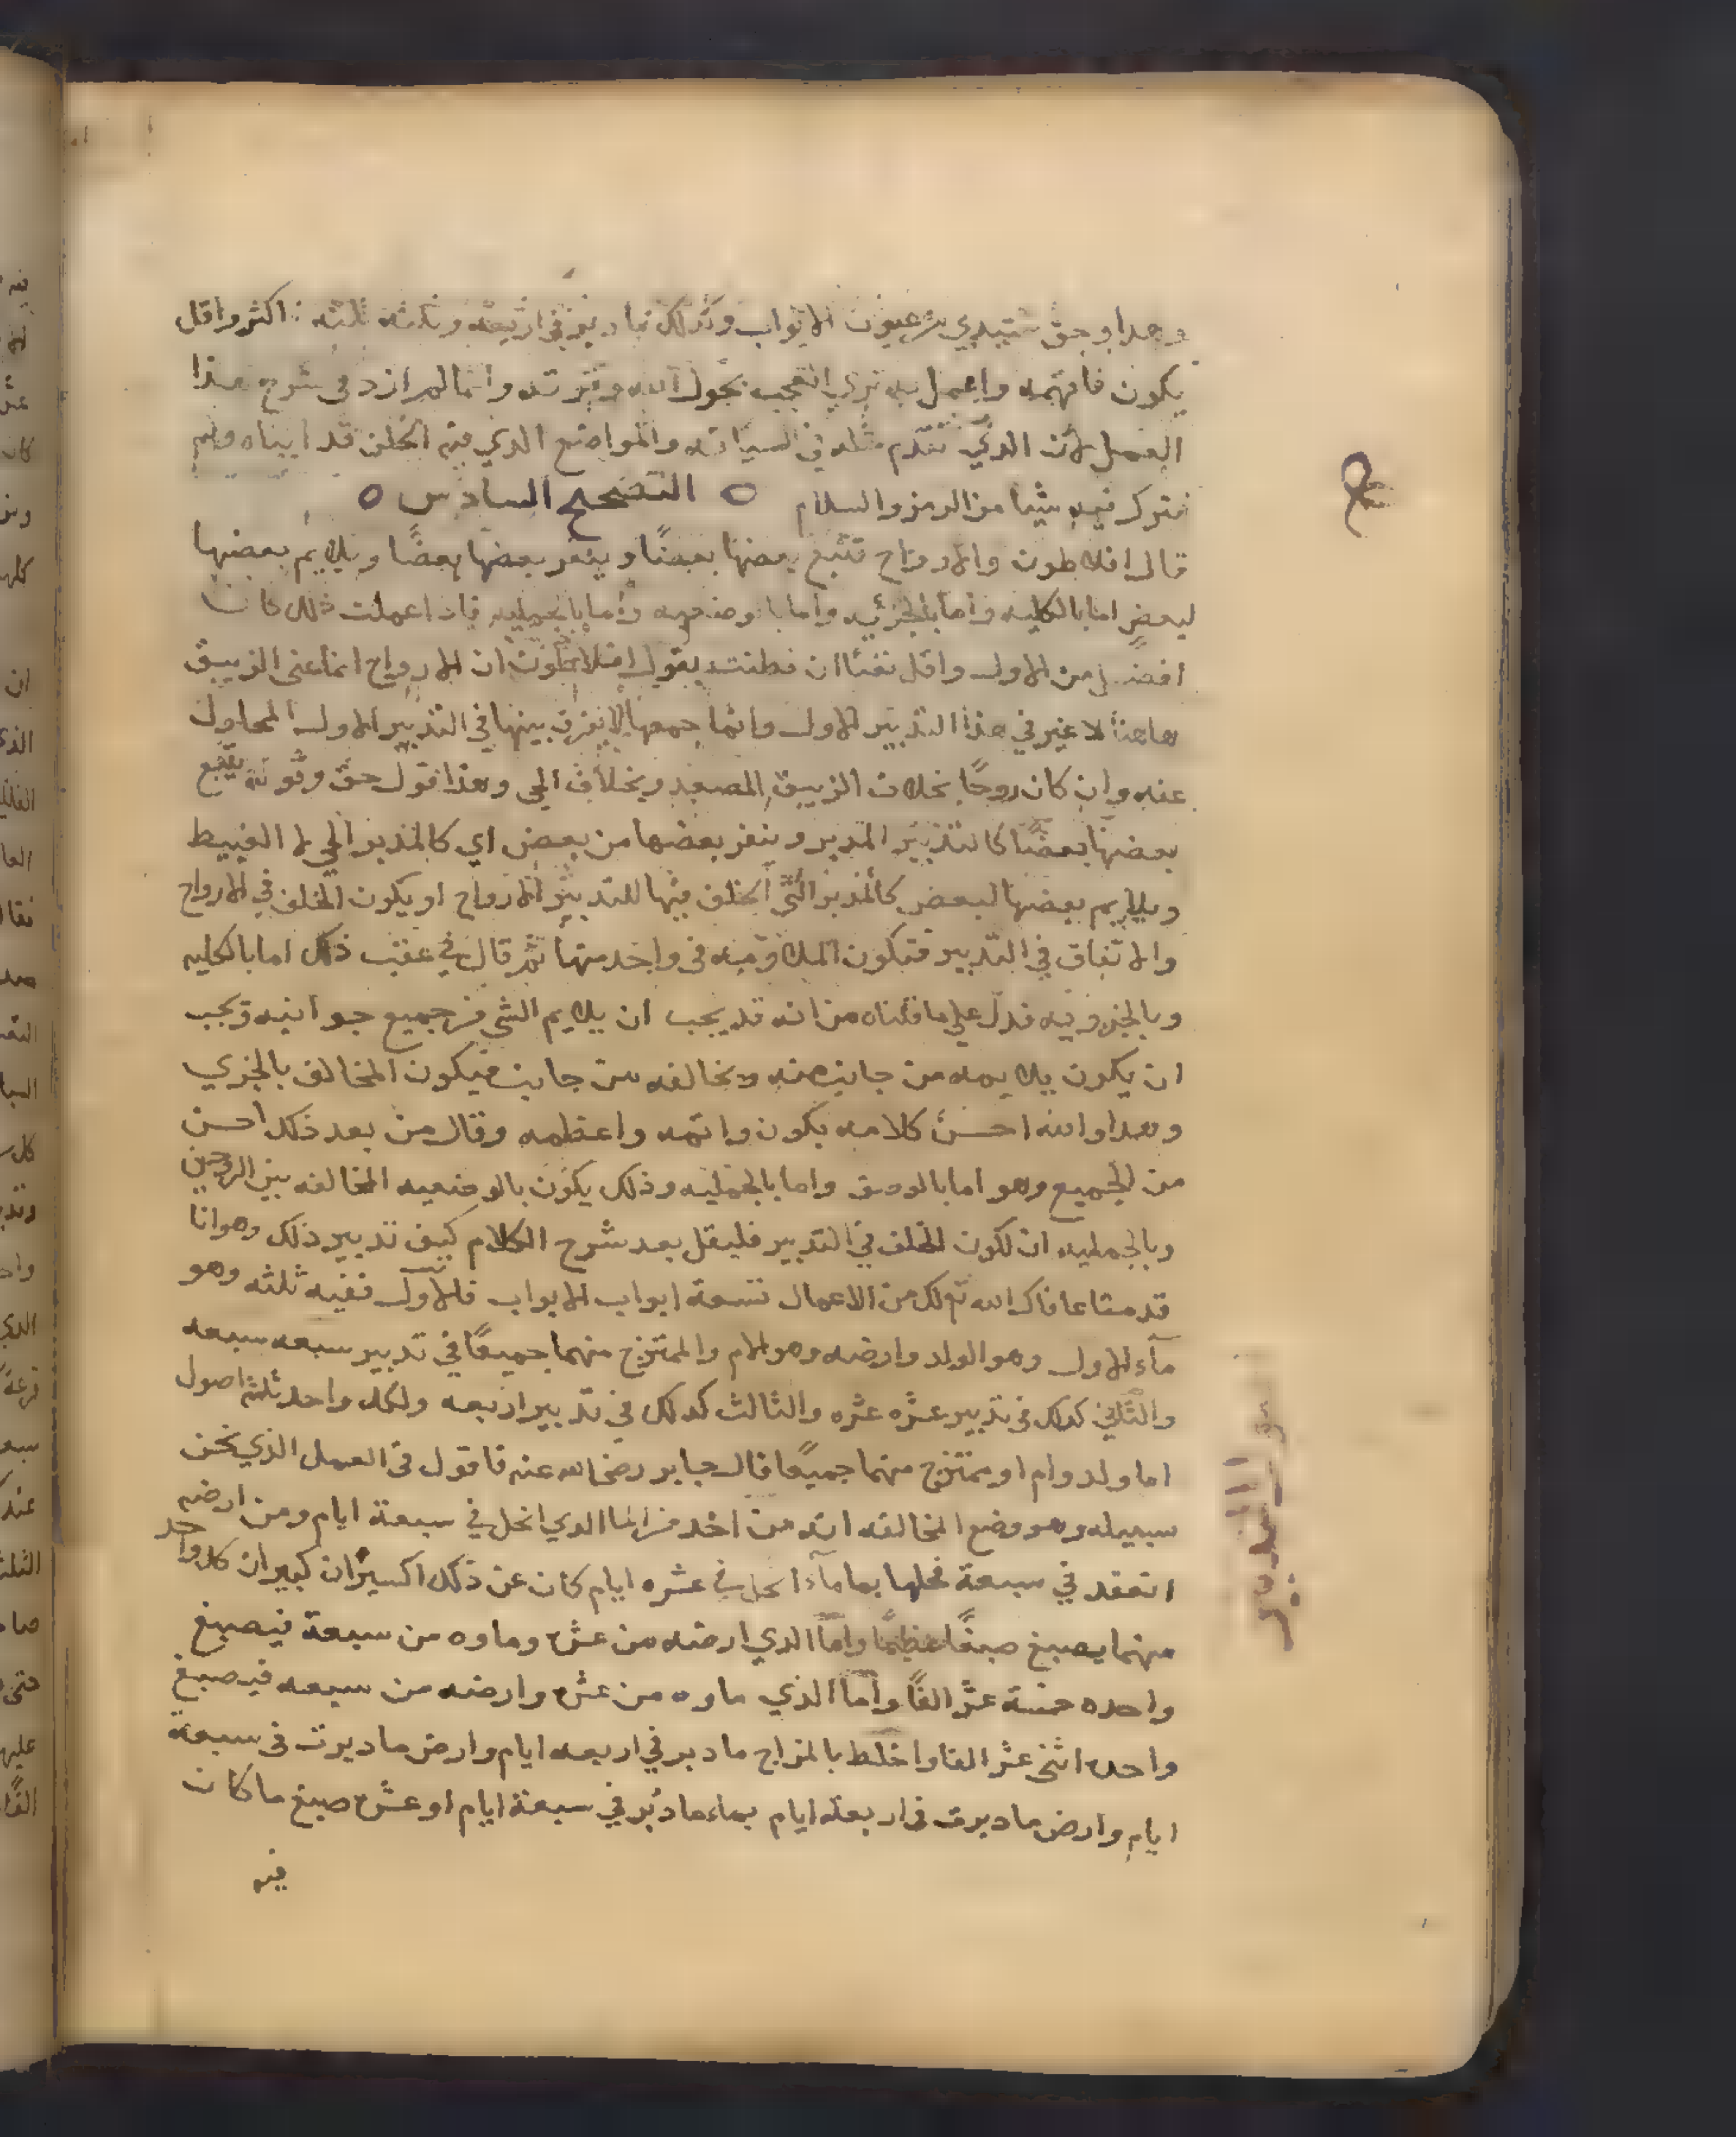 وهذا وحق سيدي من عيون الابواب وكذلك ما دبر في اربعه وثلثه ثلثه اكثر واقل
يكون فافهمه واعمل به ترى العجب بحول الله وقوته وانما لم ازد في شرح هذا
العمل لان الذي تقدم مثله في السياقه والمواضع الذي فيه الخلف قد ابناه ولم
نترك فيه شيئا من الرمز والسلام ٥ التصحيح السادس ٥
قال افلاطون والارواح تتبع بعضها بعضًا وينفر بعضها بعضًا ويلايم بعضها
لبعض اما بالكليه واما بالجزئيه واما بالوضعيه واما بالجمليه فاذا عملت ذلك كان
افضل من الاول واقل نفئا ان فطنت بقول افلاطون ان الارواح انما عنى الزيبق
هاهنا لا غير في هذا التدبير الاول وانما جمعها لا يفرق بينها في التدبير الاول المحلول
عنه وان كان روحًا بخلاف الزيبق المصعد وبخلاف الحي وهذا قول حق وقوله يتبع
بعضها بعضًا كالتدبير المدبر وينفر بعضها من بعض اي كالمدبر الحي لا الغبيط
ويلايم بعضها لبعض كالمدبر التي الخلف فيها للتدبير لا الارواح او يكون الخلف في الارواح
والاتفاق في التدبير فتكون الملاومه في واحد منها ثم قال في عقب ذلك اما بالكليه
وبالجزويه فدل على ما قلناه من انه قد يجب ان يلايم الشي من جميع جوانبه ويجب
ان يكون يلايمه من جانب منه ويخالفه من جانب فيكون المخالف بالجزي
وهذا والله احسن كلامه يكون واتمه واعظمه وقال من بعد ذلك احسن
من الجميع وهو اما بالوضع واما بالجمليه وذلك يكون بالوضعيه المخالفه بين الروحين
وبالجمليه ان لكون الخلف في التدبير فليقل بعد شرح الكلام كيف تدبير ذلك وهو انا
قدمنا عافاك الله تع لك من الاعمال تسعة ابواب الابواب فالاول ففيه ثلثه وهو
مآء الاول وهو الولد وارضه وهو الام والممتزج منهما جميعًا في تدبير سبعه سبعه
والثاني كذلك في تدبير عشره عشره والثالث كذلك في تدبير اربعه ولكل واحد ثلثه اصول
اما ولد وام او ممتزج منهما جميعًا قال جابر رضى الله عنه فاقول في العمل الذي نحن
سبيله وهو وضع المخالفه انه من اخذ من الما الذي انحل في سبعة ايام ومن ارضه
انعقد في سبعة فحلها بما مآء انحل في عشره ايام كان عن ذلك اكسيران كبيران كل واحد
منهما يصبغ صبغًا عظيمًا واما الذي ارضه من عشره وماوه من سبعة فيصبغ
واحده خمسة عشر الفًا واما الذي ماوه من عشره وارضه من سبعه فيصبغ
واحده اثنى عشر الفا واخلط بالمزاج ما دبر في اربعه ايام وارض ما دبرت في سبعة
ايام وارض ما دبرت في اربعة ايام بماء ما دبر في سبعة ايام او عشره صبغ ما كان
فيه